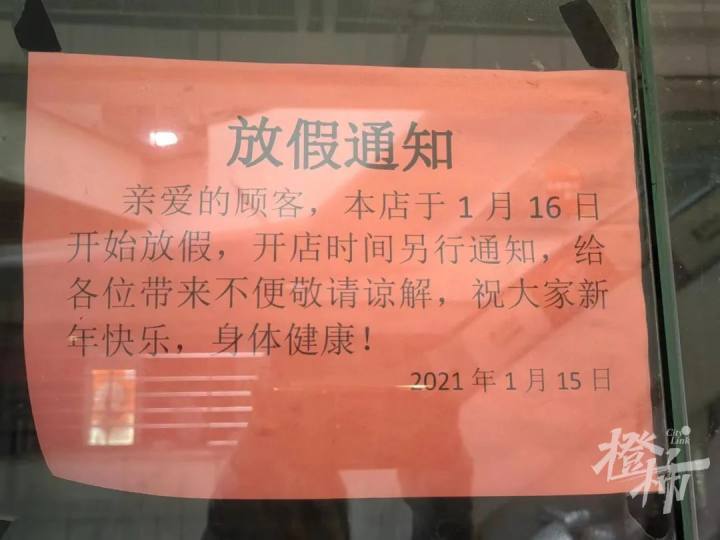 放假通知
亲爱的顾客，本店于1月16日
开始放假，开店时间另行通知，给
各位带来不便敬请谅解，祝大家新
年快乐，身体健康！
2021年1月15日
City Link
橙柿